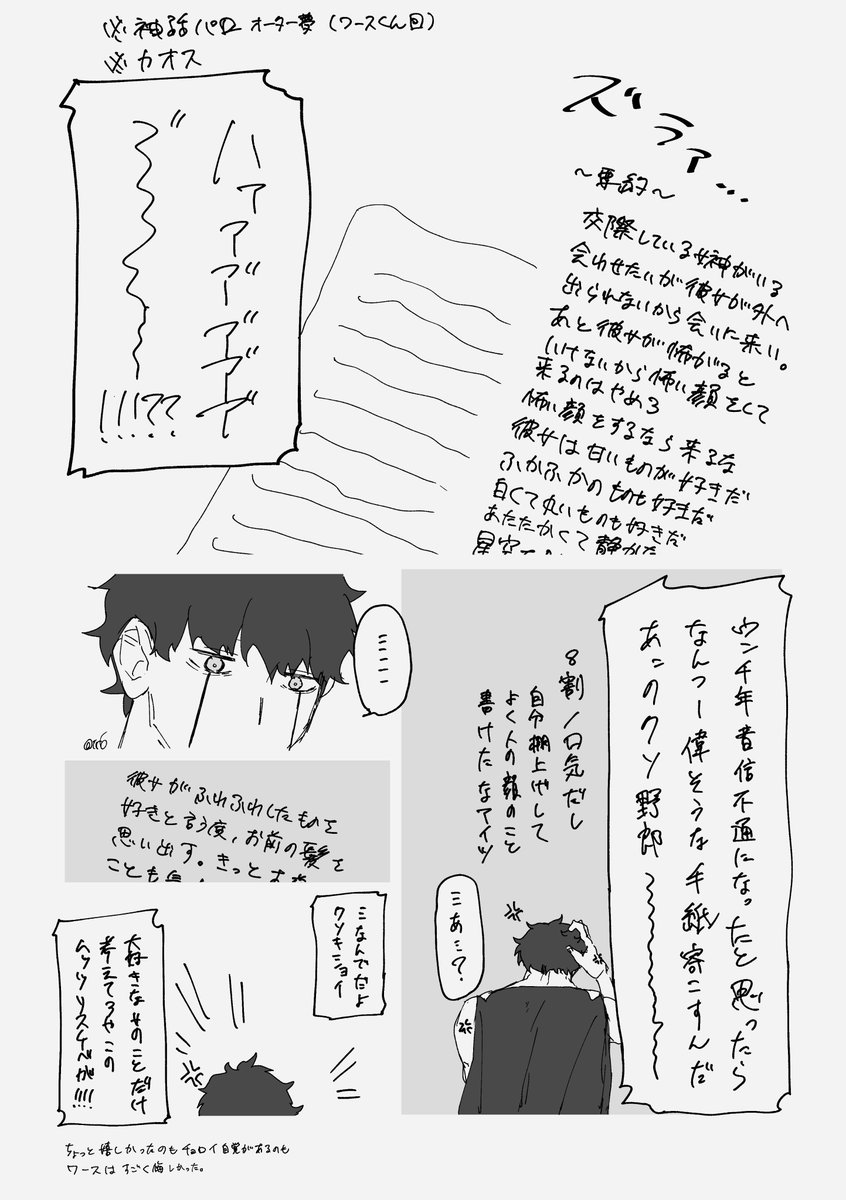 ※神話パロ オーター夢（ワースくん回）
※カオス
ズラァ…
ハァァアアアア
!!!??
〜要約〜
交際している女神がいる
会わせたいが彼女が外へ
出られないから会いに来い。
あと彼女が怖がると
いけないから怖い顔をして
来るのはやめろ
怖い顔をするなら来るな
彼女は甘いものが好きだ
ふかふかのものも好きだ
白くて丸いものも好きだ
あたたかくて静かな
ウン千年音信不通になったと思ったら
なんつー偉そうな手紙寄こすんだ
あんのクソ野郎
8割ノロ気だし
自分棚上げして
よく人の顔のこと
書けたなアイツ
……
彼女がふわふわしたものを
好きと言う度、お前の髪を
思い出す。きっと
…あ…?
…なんでだよ
クソキショイ
大好きな女のことだけ
考えてろやこの
ムッツリスケベが!!!!
ちょっと嬉しかったのもチョロイ自覚があるのも
ワースはすごく悔しかった。